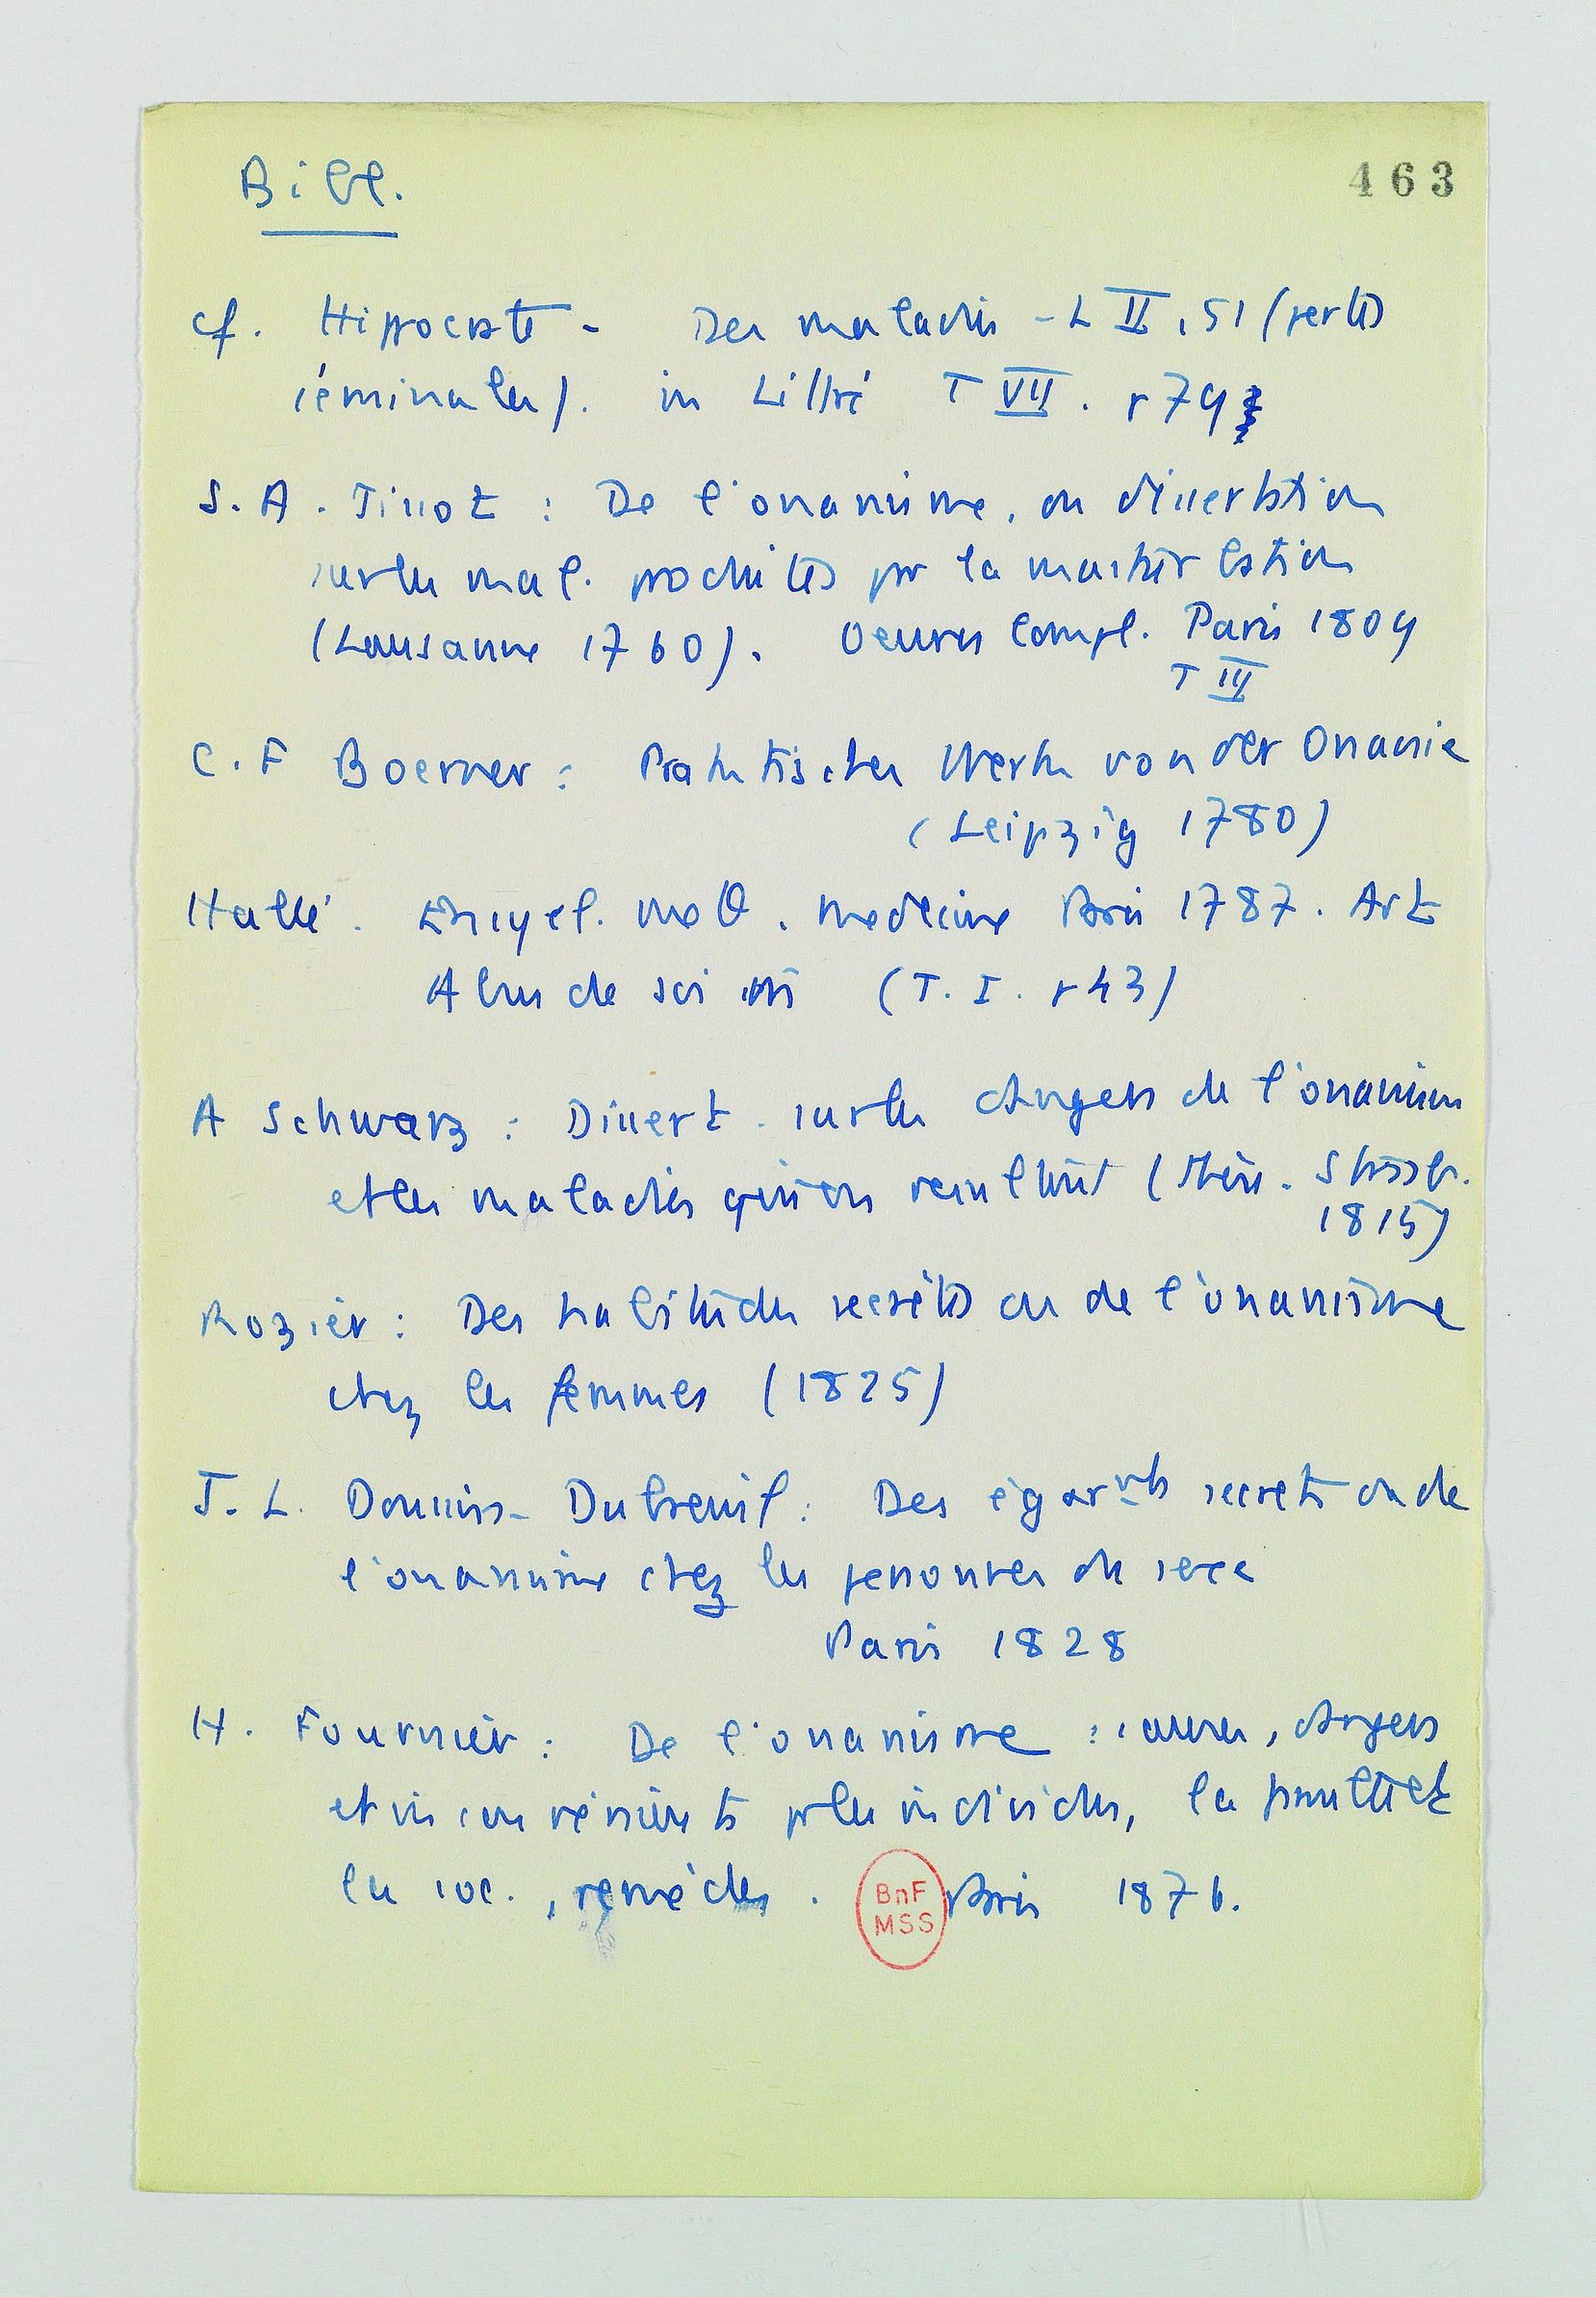 Bibl.
463
cf. Hippocrate - Des maladies - L II, 51 (pertes
séminales). in Littré T VII. p 79
S. A. Tissot : De l'onanisme, ou dissertation
sur les mal. produites par la masturbation
(Lausanne 1760). Oeuvres Compl. Paris 1809
T III
C. F Boerner : Praktisches Werk von der Onanie
(Leipzig 1780)
Hallé. Encycl. méth. Médecine Paris 1787. Art
Abus de soi (T. I. p 43)
A Schwarz : Dissert. sur les dangers de l'onanisme
et les maladies qui en résultent (Thèse. Strasb.
1815)
Rozier : Des habitudes secrètes ou de l'onanisme
chez les femmes (1825)
J. L. Doussin-Dubreuil : Des égarmts secrets ou de
l'onanisme chez les personnes du sexe
Paris 1828
H. Fournier : De l'onanisme : causes, dangers
et inconvénients pr les individus, la famille et
la soc., remèdes. Paris 1876.
BnF
MSS